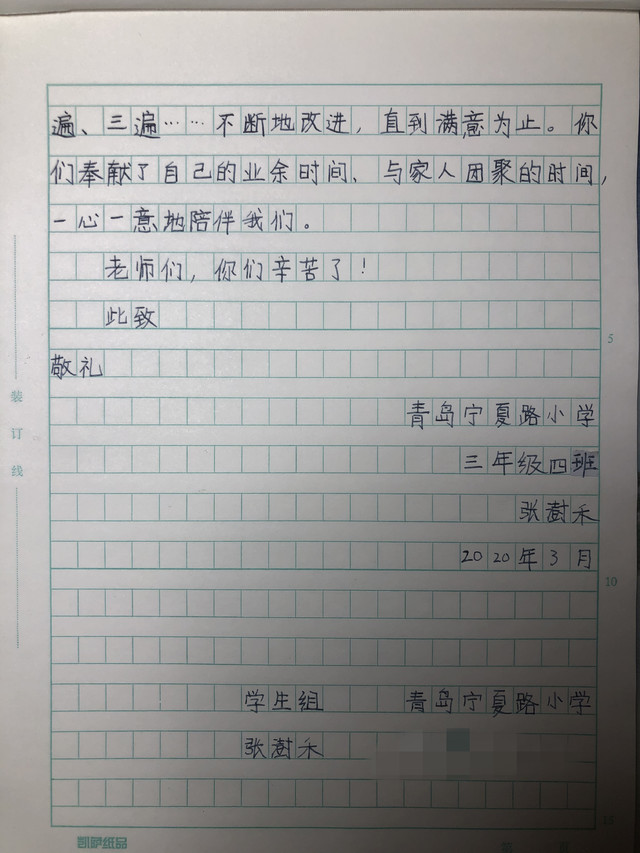 遍、三遍……不断地改进，直到满意为止。你
们奉献了自己的业余时间、与家人团聚的时间，
一心一意地陪伴我们。
老师们，你们辛苦了！
此致
5
敬礼
装订线
青岛宁夏路小学
三年级四班
张澍禾
2020年3月
10
学生组 青岛宁夏路小学
张澍禾
15
凯萨纸品